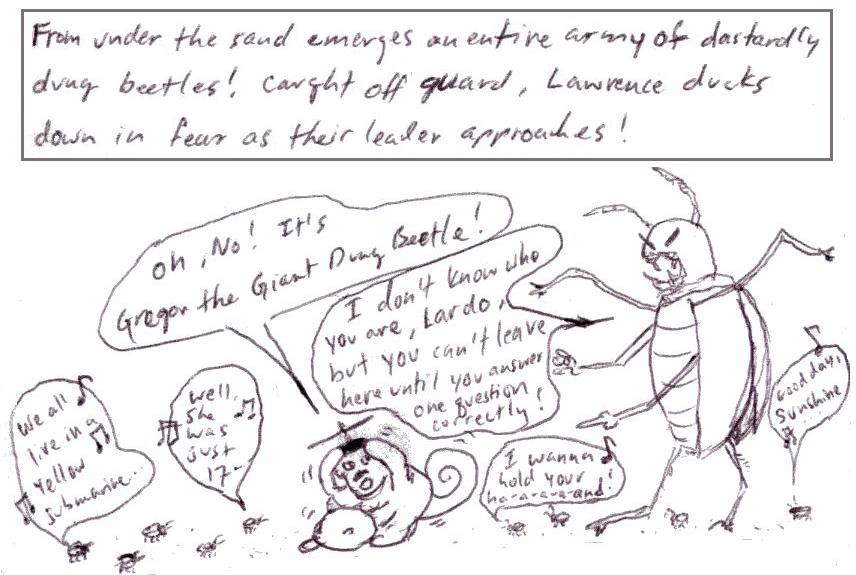 From under the sand emerges an entire army of dastardly
dung beetles! Caught off guard, Lawrence ducks
down in fear as their leader approaches!
Oh, No! It's
Gregor the Giant Dung Beetle!
I don't know who
you are, Lardo,
but you can't leave
here until you answer
one question
correctly!
We all
live in a
yellow
submarine...
Well,
She
was
just
17-
I wanna
hold your
ha-a-a-a-and!
Good day,
Sunshine